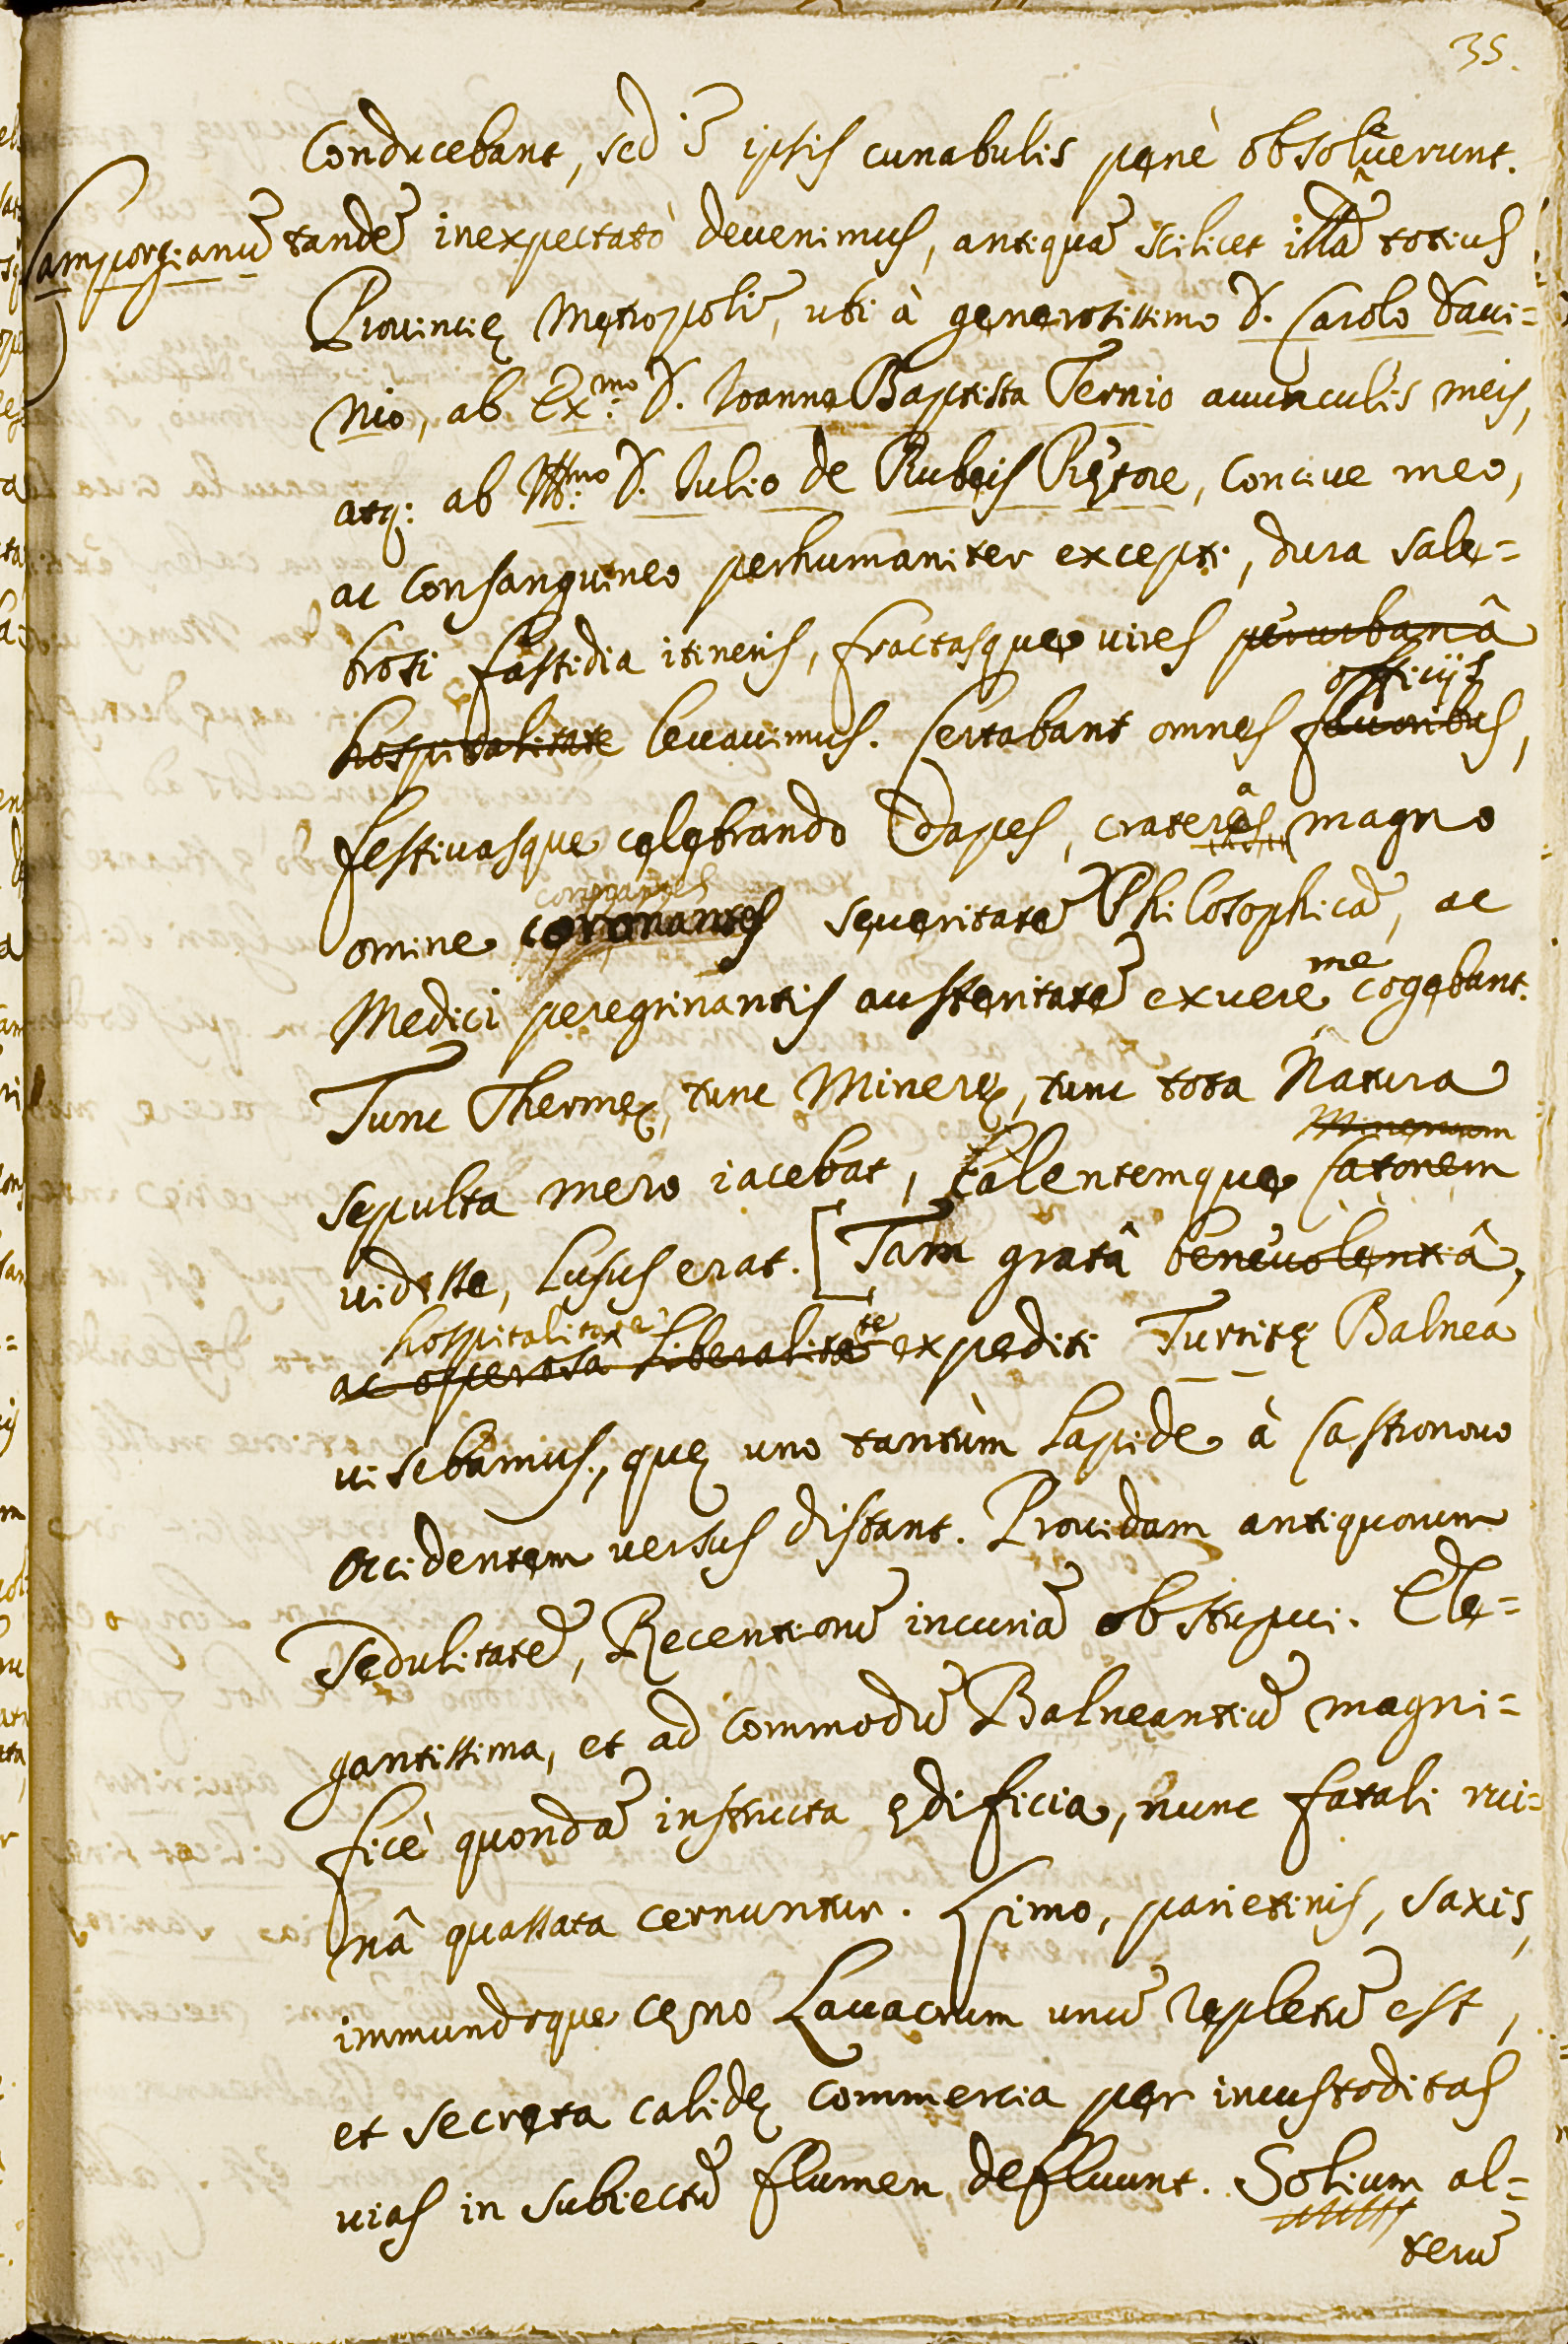 35.
Conducebant, sed ĩ ipsis cunabulis penè obsoluerunt.
Camporgianũ tandẽ inexpectatò deuenimus, antiquã scilicet illã totius
Prouincię Metropolĩ, uti à generosissimo D. Carolo Daui=
nio, ab Ex.mo D. Ioanne Baptista Ternio auunculis meis,
atq: ab Ill.mo D. Iulio de Rubeis Prętore, Conciue meo,
ac Consanguineo perhumaniter excepti, dura sale=
brosi fastidia itineris, fractasque vires perurbanâ
officijs
hospitalitate leuauimus. Certabant omnes fauoribus,
festiuasque celebrando Dapes, craterâs magno
coronantes
omine coronantes seueritatẽ Philosophicã, ac
me
Medici peregrinantis austeritatẽ exuere cogebant.
Tunc Thermę, tunc Minerę, tunc tota Natura
Mineruam
sepulta mero iacebat, calentemque Catonem
uidisse, Lusus erat. [Tam gratâ beneuolentiâ,
hospitalitate
ac operosa Liberalitate expediti Turritę Balnea
uisebamus, quę uno tantùm Lapide à Castronouo
Occidentem versus distant. Prouidam antiquorum
Sedulitatẽ, Recentiorũ incuriã obstupui. Ele=
gantissima, et ad Commodũ Balneantiũ magni=
ficè quondã instructa ędificia, nunc fatali rui=
nâ quassata cernuntur. Limo, parietinis, saxis,
immundoque cęno Lauacrum unũ repletũ est,
et secreta calidę commercia per incustoditas
uias in subiectũ flumen defluunt. Solium al=
terũ